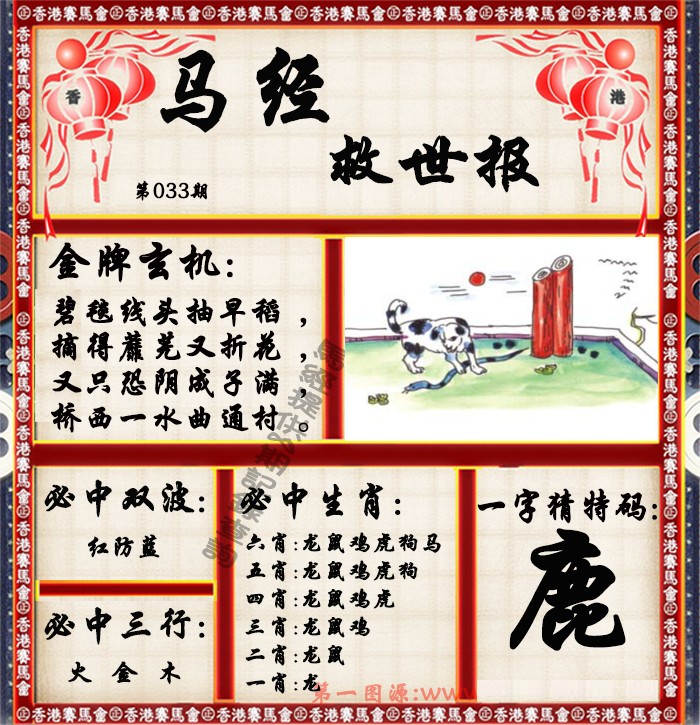 香港賽馬會
香 港
马经
救世报
第033期
金牌玄机:
碧毯线头抽早稻,
摘得蘼芜又折花,
又只恐阴成子满,
桥西一水曲通村。
必中双波:
红防蓝
必中三行:
火金木
必中生肖:
六肖:龙鼠鸡虎狗马
五肖:龙鼠鸡虎狗
四肖:龙鼠鸡虎
三肖:龙鼠鸡
二肖:龙鼠
一肖:龙
一字猜特码:
鹿
第一图源:www